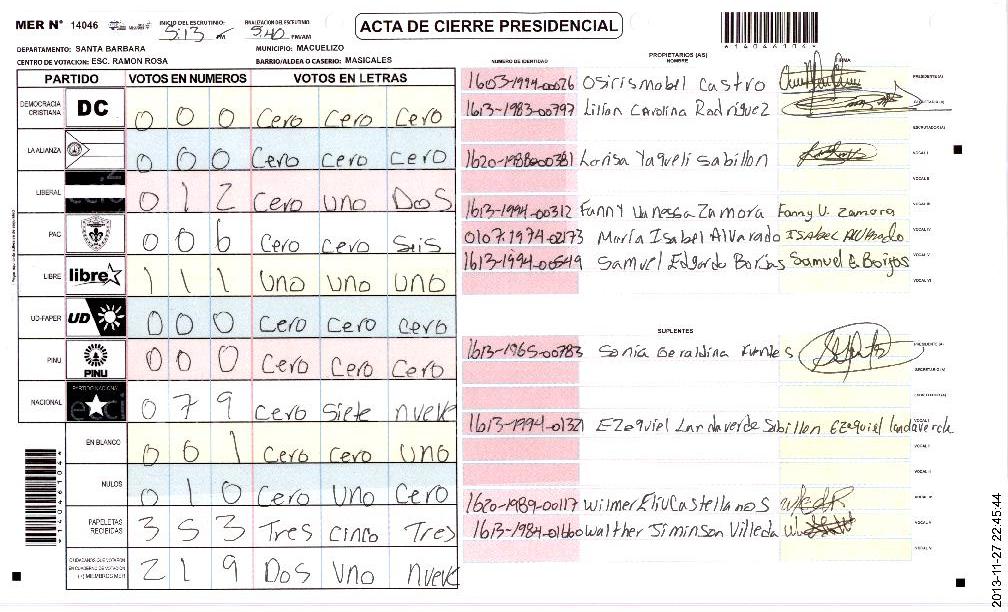 MER N° 14046 INICIO DEL ESCRUTINIO: 5:13 PM FINALIZACION DEL ESCRUTINIO: 5:40 PM/AM
ACTA DE CIERRE PRESIDENCIAL
*14046104*
DEPARTAMENTO: SANTA BARBARA MUNICIPIO: MACUELIZO
CENTRO DE VOTACION: ESC. RAMON ROSA BARRIO/ALDEA O CASERIO: MASICALES
PARTIDO VOTOS EN NUMEROS VOTOS EN LETRAS
DEMOCRACIA CRISTIANA DC 0 0 0 Cero Cero Cero
LA ALIANZA 0 0 0 Cero Cero Cero
LIBERAL 0 1 2 Cero UNO DOS
PAC 0 0 6 Cero Cero Seis
LIBRE libre 1 1 1 UNO UNO UNO
UD-FAPER UD 0 0 0 Cero Cero Cero
PINU PINU 0 0 0 Cero Cero Cero
NACIONAL PARTIDO NACIONAL 0 7 9 Cero Siete Nueve
EN BLANCO 0 0 1 Cero Cero UNO
NULOS 0 1 0 Cero UNO Cero
PAPELETAS RECIBIDAS 3 5 3 Tres Cinco Tres
CIUDADANOS QUE VOTARON EN CUADERNO DE VOTACION (+) MIEMBROS MER 2 1 9 DOS UNO Nueve
PROPIETARIOS (AS)
NUMERO DE IDENTIDAD NOMBRE FIRMA
1603-1994-00026 Osirismabel Castro PRESIDENTE(A)
1613-1983-00797 Lilian Carolina Rodríguez SECRETARIA(A)
ESCRUTADOR(A)
1620-1988-00381 Lorisa Yaqueli Sabillon VOCAL I
VOCAL II
1613-1994-00312 Fanny Vanessa Zamora Fanny V. Zamora VOCAL III
0107-1974-02173 María Isabel Alvarado ISABEL Alvarado VOCAL IV
1613-1994-00549 Samuel Edgardo Borjas Samuel E. Borjas VOCAL V
VOCAL VI
SUPLENTES
1613-1965-00783 Sonia Geraldina Fuentes PRESIDENTE(A)
SECRETARIO(A)
1613-1994-01321 Ezequiel Landaverde Sabillon Ezequiel landaverde VOCAL I
VOCAL II
VOCAL III
1620-1989-00117 Wilmer Eliu Castellanos VOCAL IV
1613-1984-01660 Walther Jiminson Villeda VOCAL V
VOCAL VI
*14046104*
2013-11-27 22:45:44